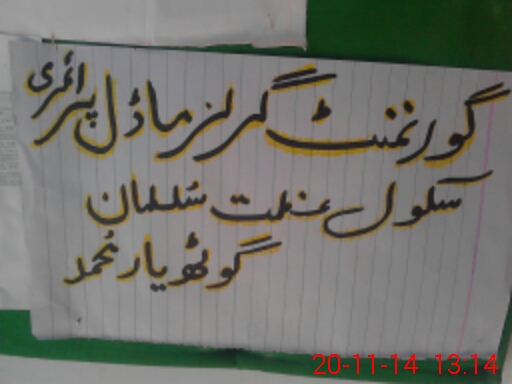 گورنمنٹ گرلز ماڈل پرائمری
سکول عظمت سلطان
گوٹھ یار محمد
20-11-14 13:14